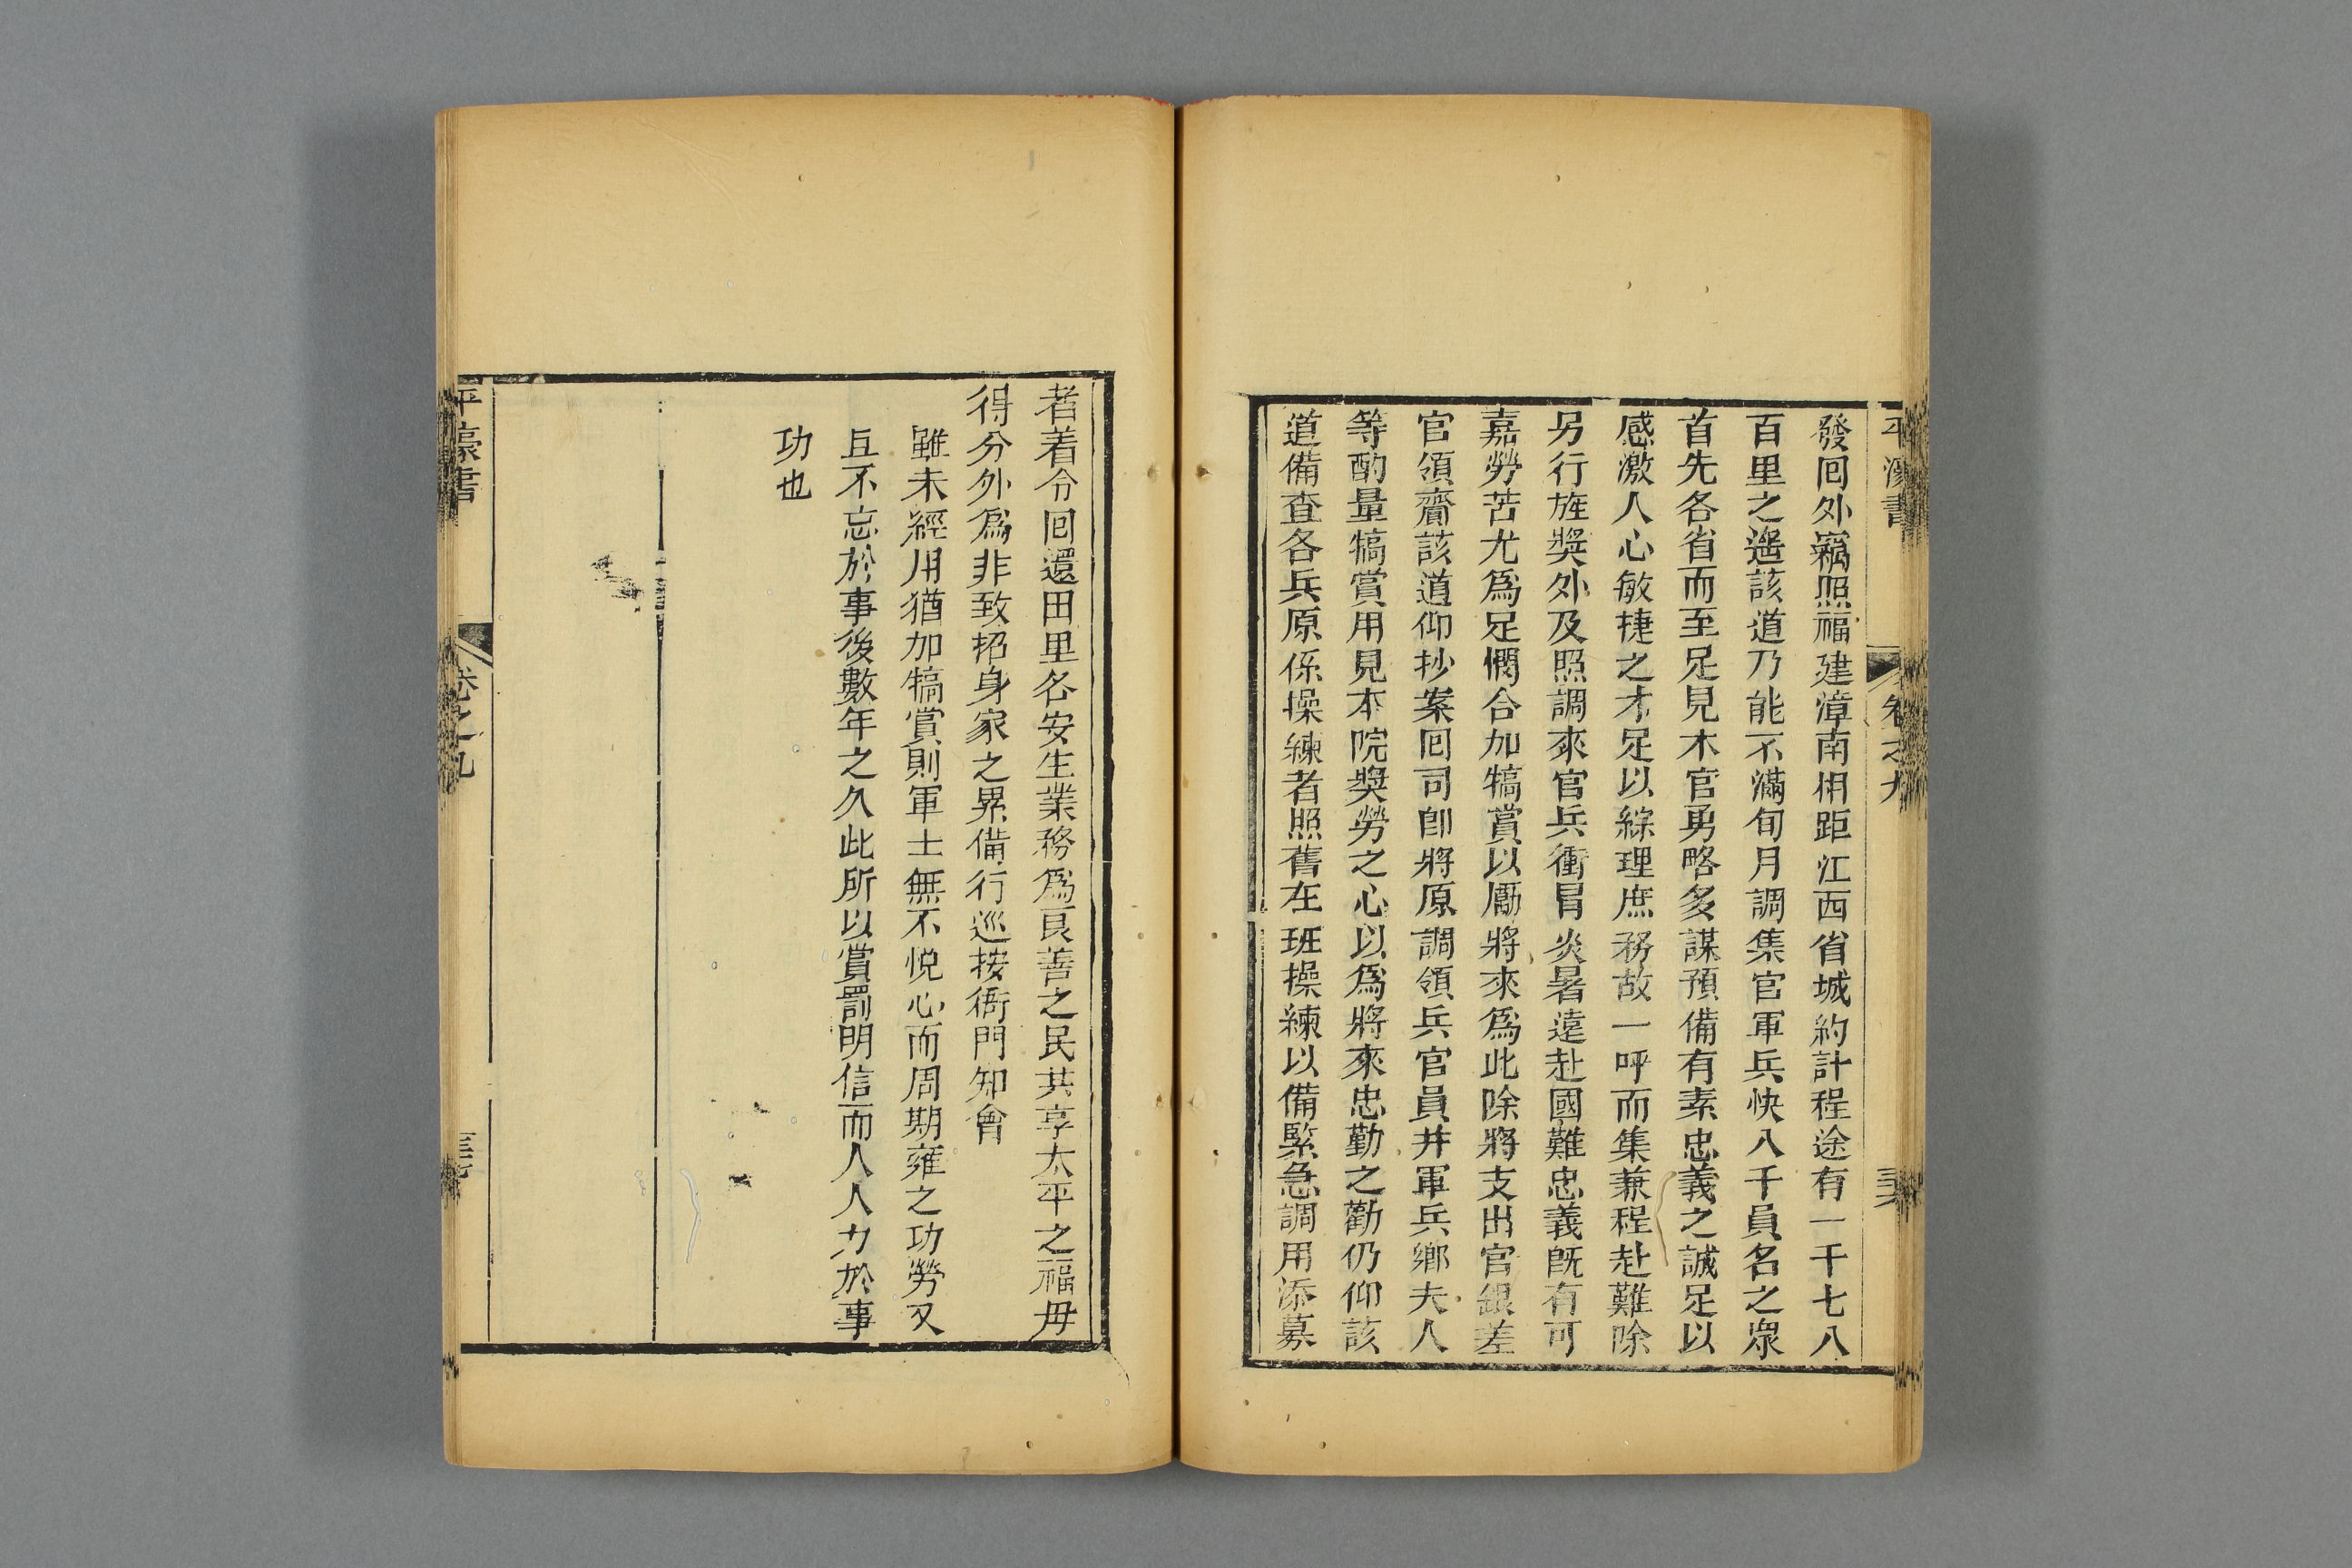 平濠書 卷之九
發囘外竊照福建漳南相距江西省城約計程途有一千七八
百里之遙該道乃能不滿旬月調集官軍兵快八千員名之衆
首先各省而至足見本官勇略多謀預備有素忠義之誠足以
感激人心敏捷之才足以綜理庶務故一呼而集兼程赴難除
另行旌奬外及照調來官兵衝冒炎暑遠赴國難忠義旣有可
嘉勞苦尤爲足憫合加犒賞以勵將來爲此除將支出官銀差
官領齎該道仰抄案囘司卽將原調領兵官員幷軍兵鄉夫人
等酌量犒賞用見本院奬勞之心以爲將來忠勤之勸仍仰該
道備查各兵原係操練者照舊在班操練以備緊急調用添募
者着令囘還田里各安生業務爲良善之民共享太平之福毋
得分外爲非致招身家之累備行巡按衙門知會
雖未經用猶加犒賞則軍士無不悅心而周期雍之功勞又
且不忘於事後數年之久此所以賞罰明信而人人力於事
功也
平濠書 卷之九